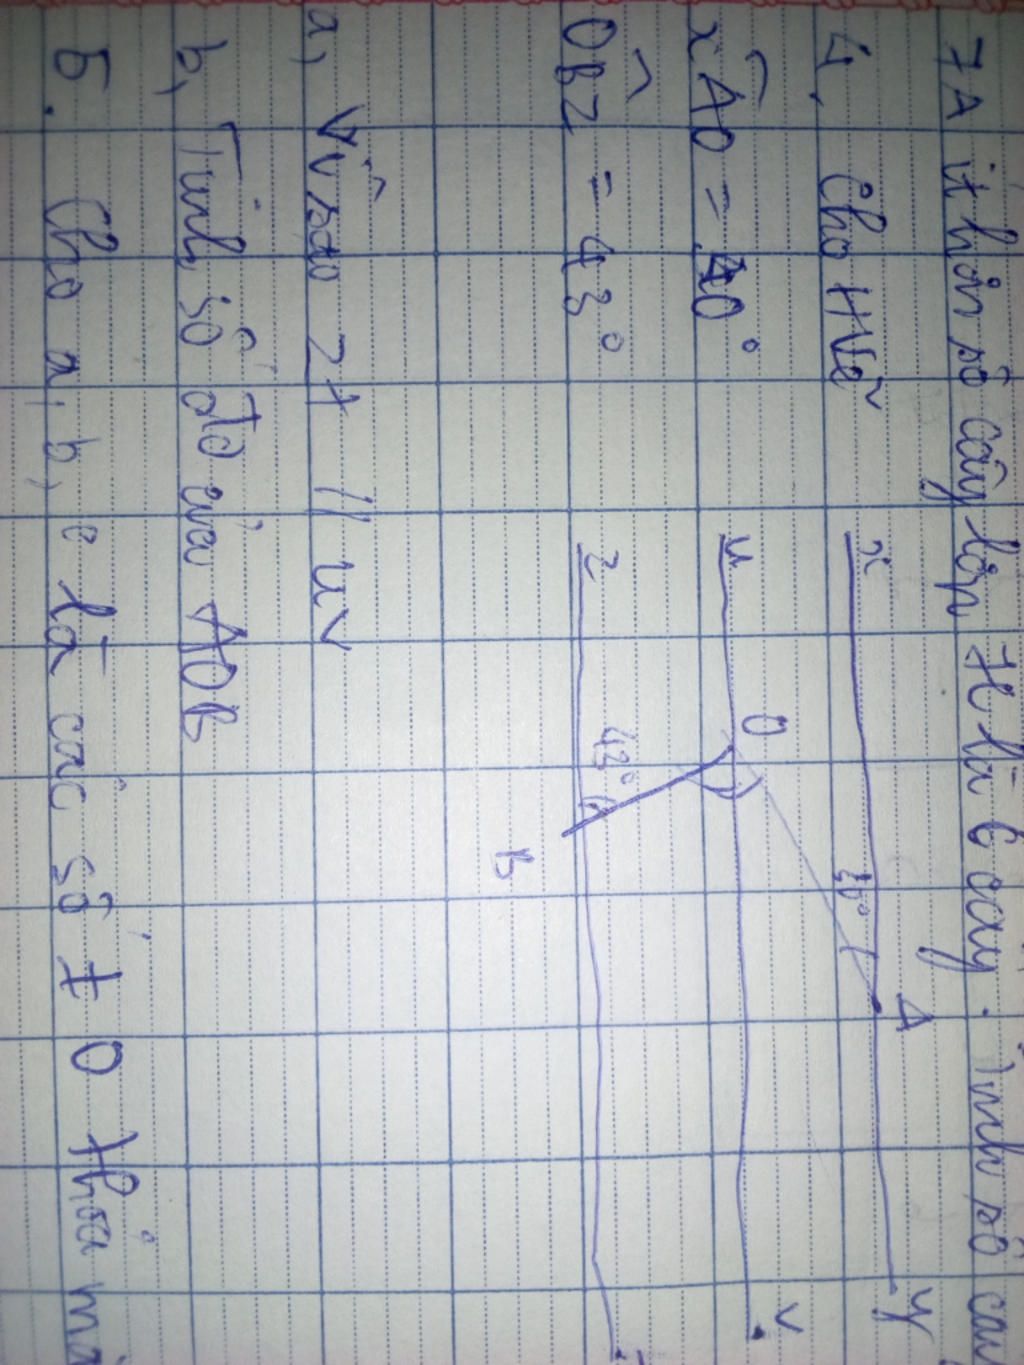 7A ít hơn số cây lớp 7H là 6 cây. Tính số cây
4, Cho HVẽ
xAO = 40°
OBz = 43°
x
A
y
30°
u
O
v
z
43°
B
a, Vì sao zt // uv
b, Tính số đo của AOB
5. Cho a, b, c là các số ≠ 0 thỏa mã